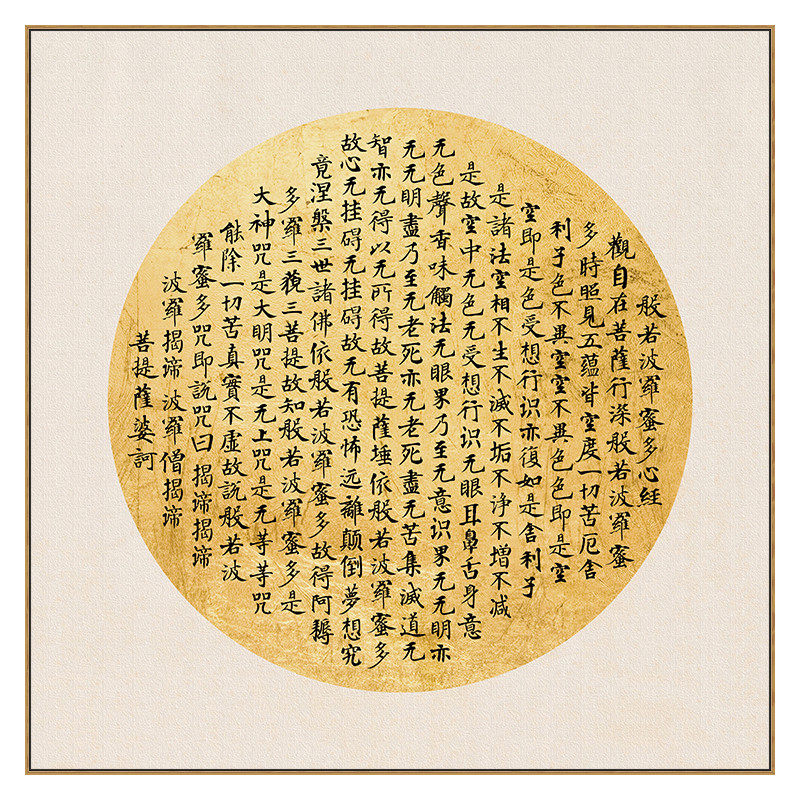 般若波羅蜜多心经
觀自在菩薩行深般若波羅蜜
多時照見五蕴皆空度一切苦厄舍
利子色不異空空不異色色即是空
空即是色受想行识亦復如是舍利子
是諸法空相不生不滅不垢不净不增不减
是故空中无色无受想行识无眼耳鼻舌身意
无色聲香味觸法无眼界乃至无意识界无无明亦
无无明盡乃至无老死亦无老死盡无苦集滅道无
智亦无得以无所得故菩提薩埵依般若波羅蜜多
故心无挂碍无挂碍故无有恐怖远離颠倒夢想究
竟涅槃三世諸佛依般若波羅蜜多故得阿耨
多羅三藐三菩提故知般若波羅蜜多是
大神咒是大明咒是无上咒是无等等咒
能除一切苦真實不虚故説般若波
羅蜜多咒即説咒曰揭諦揭諦
波羅揭諦 波羅僧揭諦
菩提薩婆訶